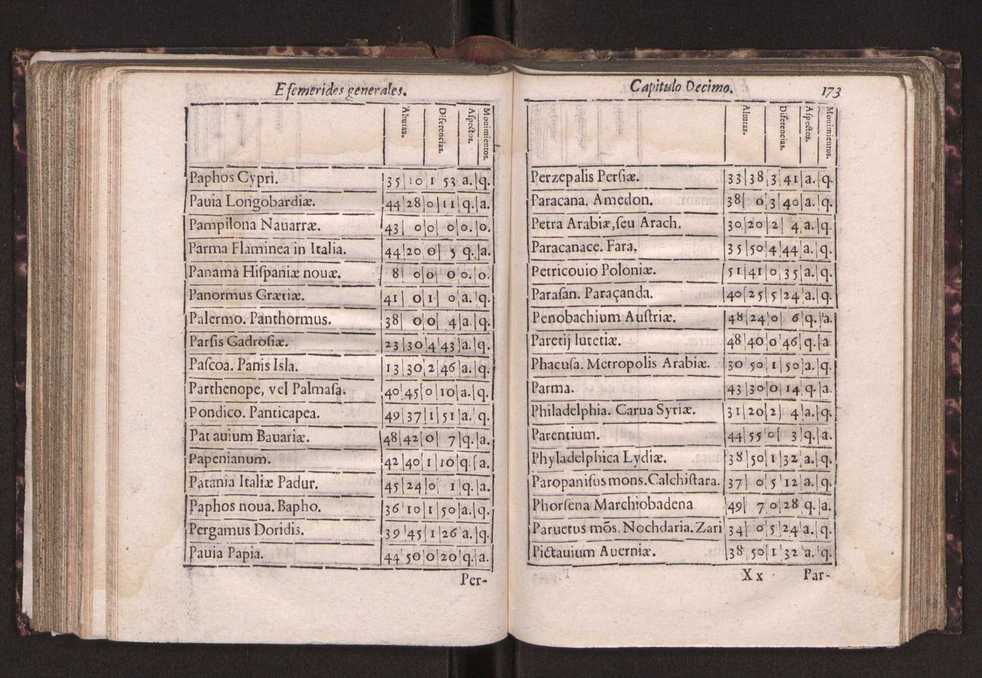 Efemerides generales.
Alturas. Diferencias. Aſpectos. Mouimientos.
Paphos Cypri. 35 10 1 53 a. q.
Pauia Longobardiæ. 44 28 0 11 q. a.
Pampilona Nauarræ. 43 0 0 0 0. 0.
Parma Flaminea in Italia. 44 20 0 5 q. a.
Panama Hiſpaniæ nouæ. 8 0 0 0 0. 0.
Panormus Græriæ. 41 0 1 0 a. q.
Palermo. Panthormus. 38 0 0 4 a. q.
Parſis Gadroſiæ. 23 30 4 43 a. q.
Paſcoa. Panis Isla. 13 30 2 46 a. q.
Parthenope, vel Palmaſa. 40 45 0 10 a. q.
Pondico. Panticapea. 49 37 1 51 a. q.
Patauium Bauariæ. 48 42 0 7 q. a.
Papenianum. 42 40 1 10 q. a.
Patania Italiæ Padur. 45 24 0 1 q. a.
Paphos noua. Bapho. 36 10 1 50 a. q.
Pergamus Doridis. 39 45 1 26 a. q.
Pauia Papia. 44 50 0 20 q. a.
Per-
Capitulo Decimo. 173
Alturas. Diferencias. Aſpectos. Mouimientos.
Perzepalis Perſiæ. 33 38 3 41 a. q.
Paracana. Amedon. 38 0 3 40 a. q.
Petra Arabiæ, ſeu Arach. 30 20 2 4 a. q.
Paracanace. Fara. 35 50 4 44 a. q.
Petricouio Poloniæ. 51 41 0 35 a. q.
Paraſan. Paraçanda. 40 25 5 24 a. q.
Penobachium Auſtriæ. 48 24 0 6 q. a.
Paretij lutetiæ. 48 40 0 46 q. a.
Phacuſa. Metropolis Arabiæ. 30 50 1 50 a. q.
Parma. 43 30 0 14 q. a.
Philadelphia. Carua Syriæ. 31 20 2 4 a. q.
Parentium. 44 55 0 3 q. a.
Phyladelphica Lydiæ. 38 50 1 32 a. q.
Paropaniſus mons. Calchiſtara. 37 0 5 12 a. q.
Phorſena Marchiobadena 49 7 0 28 q. a.
Paruetus mõs. Nochdaria. Zari 34 0 5 24 a. q.
Pictauium Auerniæ. 38 50 1 32 a. q.
Xx Par-